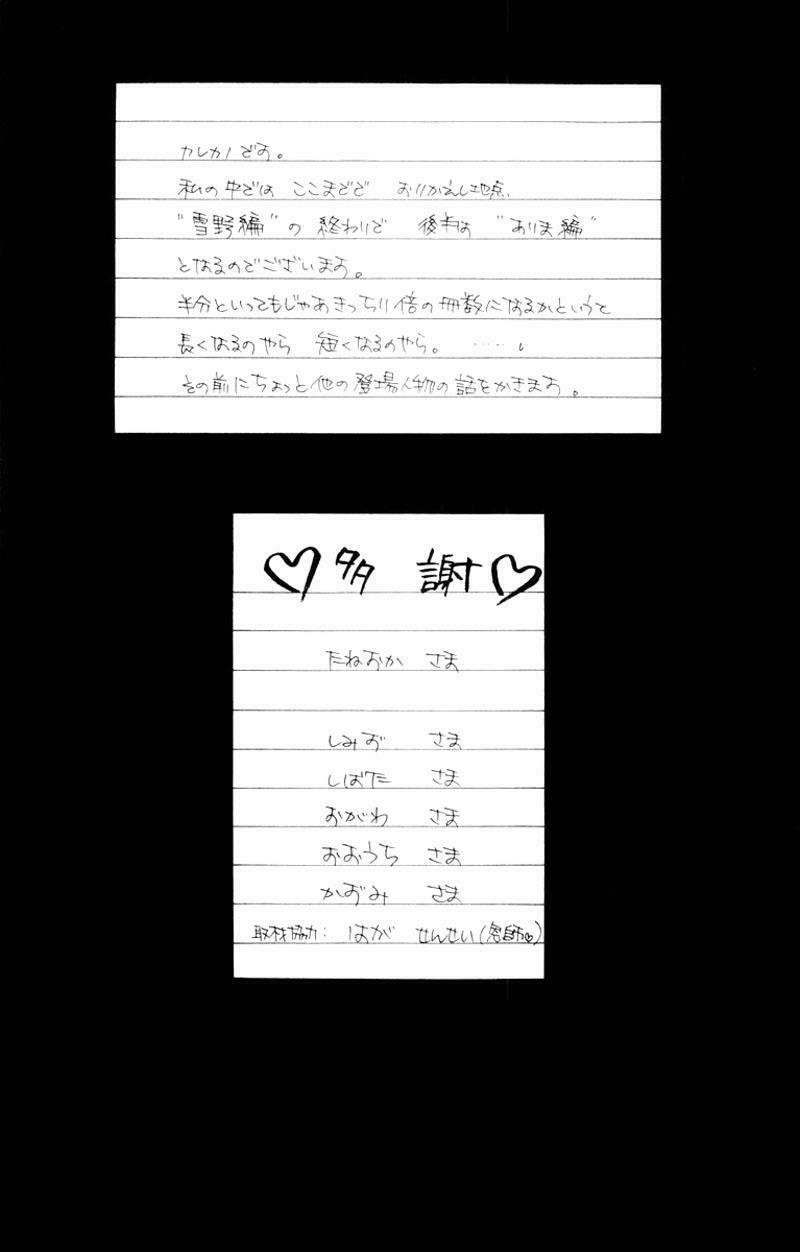 カレカノです。
私の中では ここまでで おりかえし地点
"雪野編"の 終わりで 後半は "ありま編"
となるのでございます。
半分といってもじゃあきっちり倍の冊数になるかというと
長くなるのやら 短くなるのやら。……。
その前にちょっと他の登場人物の話をかきます。
♡多 謝♡
たねおか さま
しみず さま
しばた さま
おがわ さま
おおうち さま
かおみ さま
取材協力: はが せんせい(恩師♡)